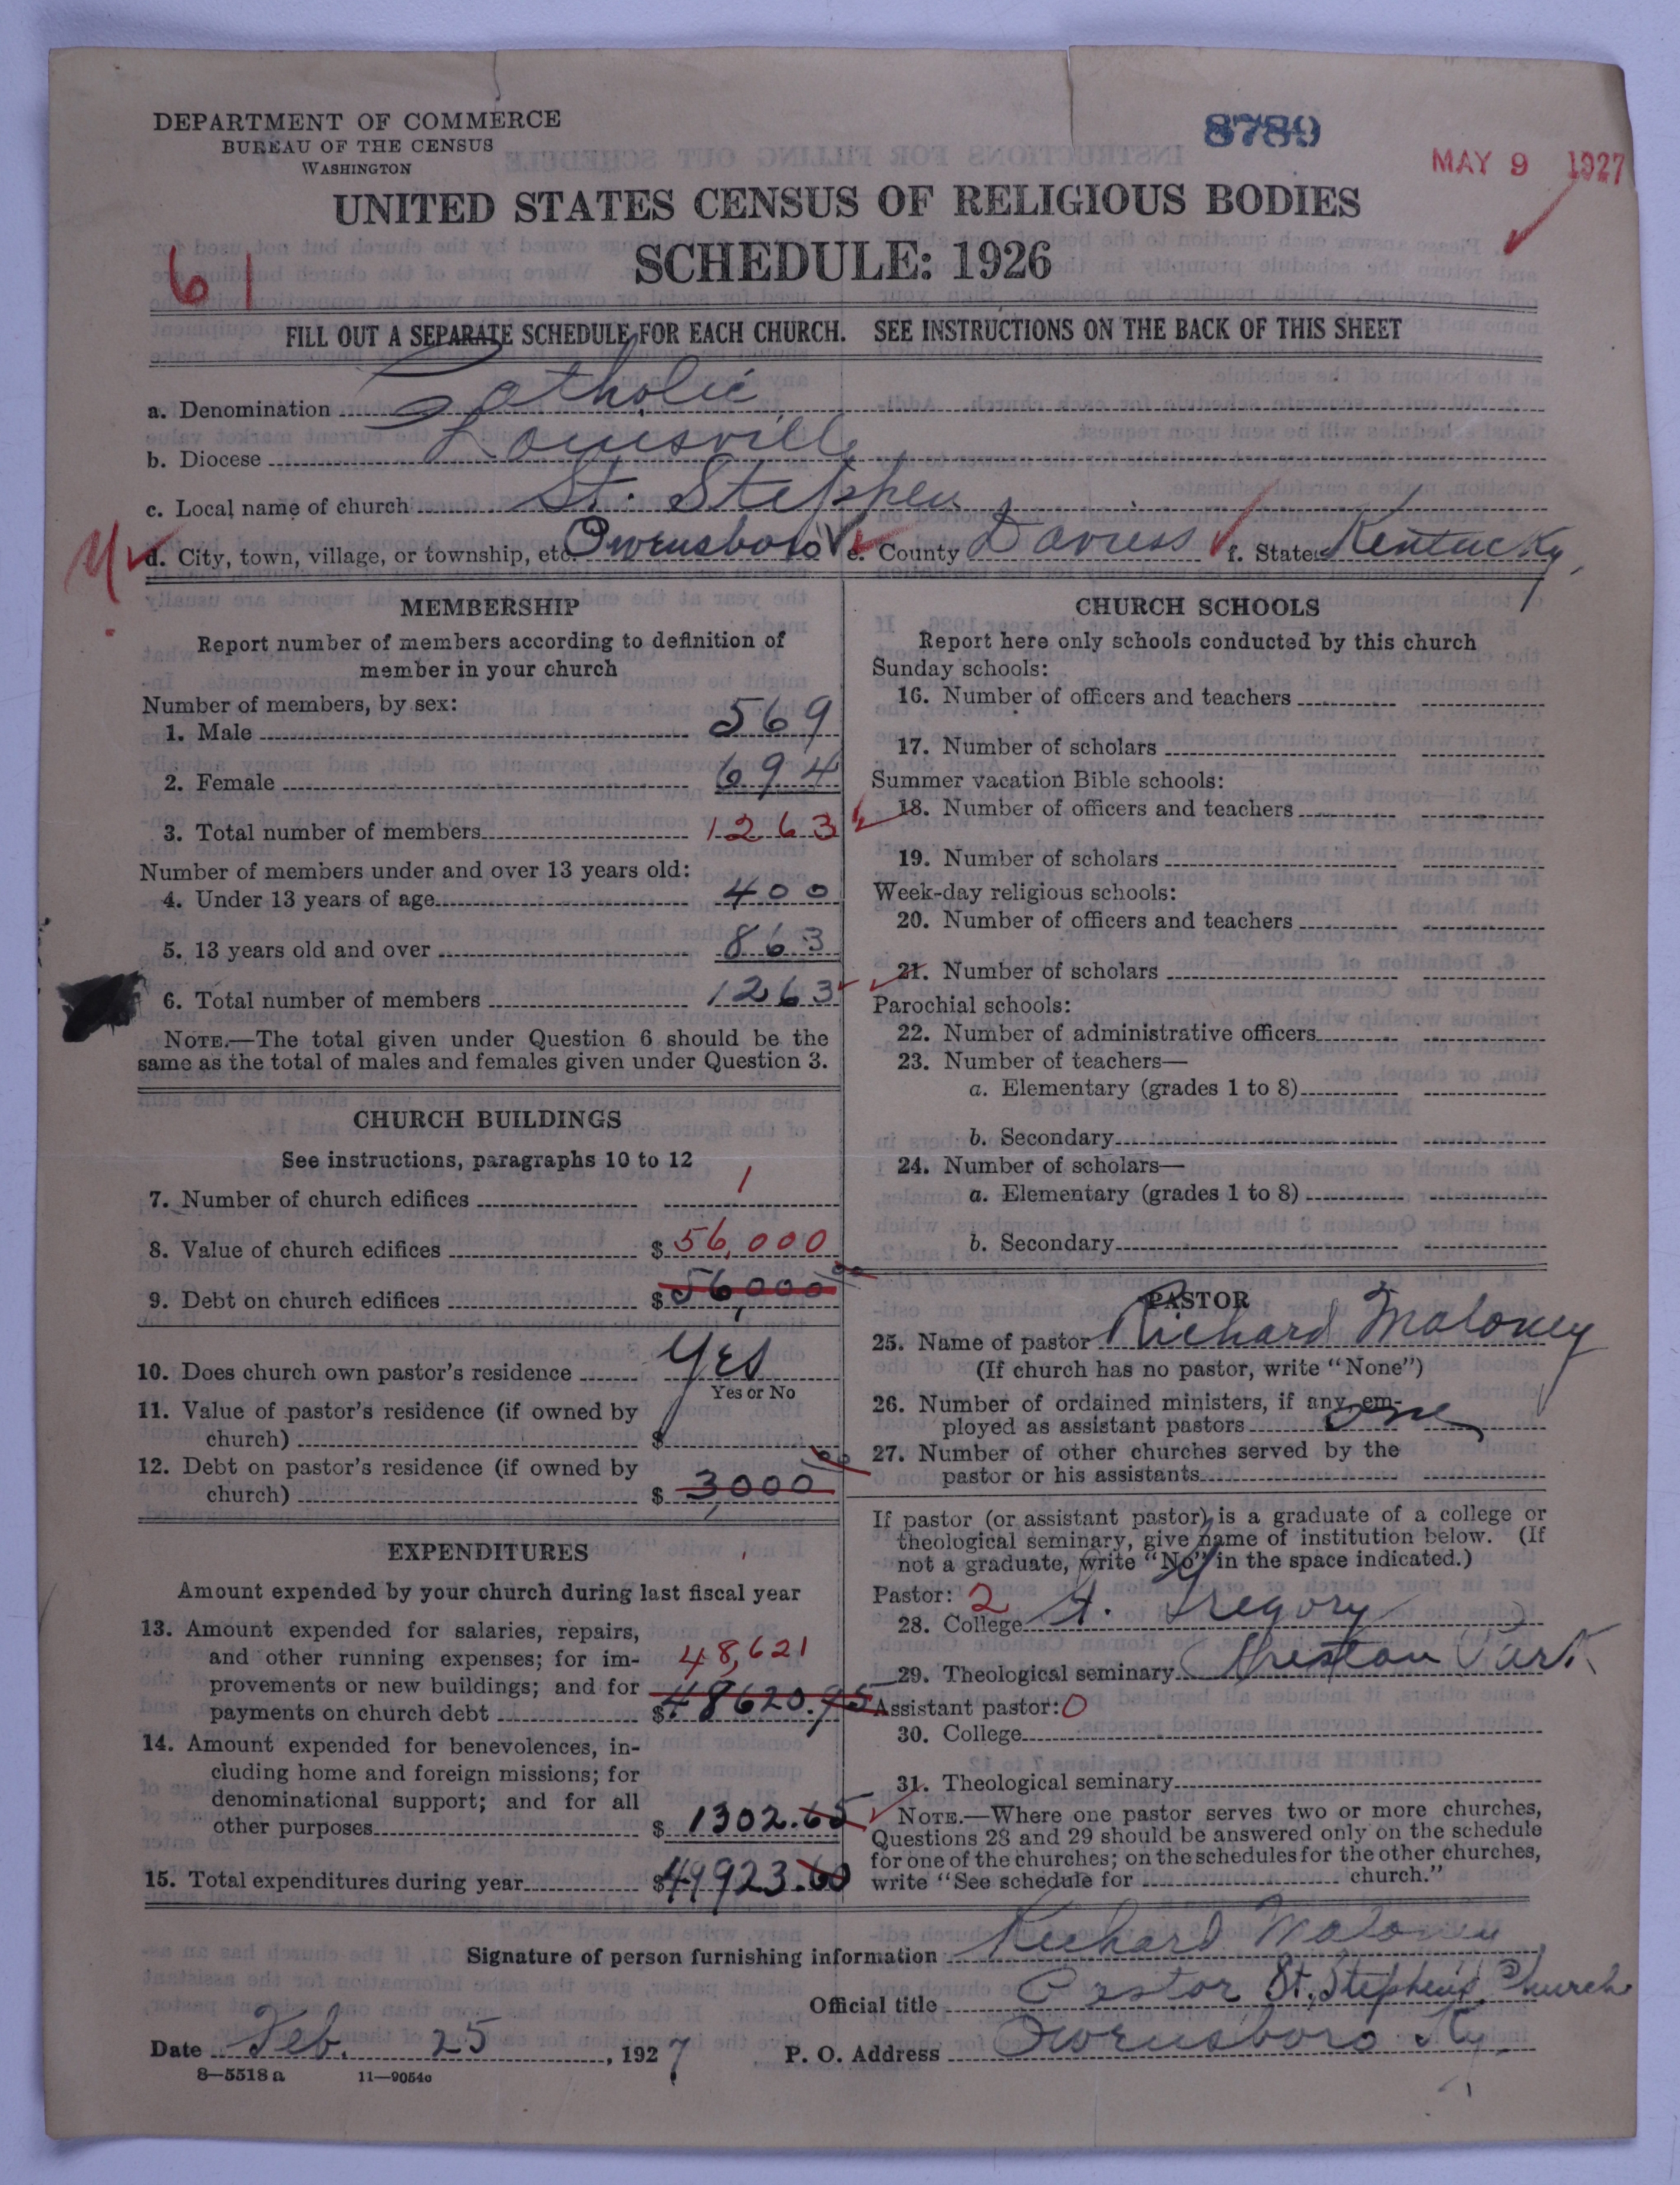 DEPARTMENT OF COMMERCE
BUREAU OF THE CENSUS
WASHINGTON
8789
MAY 9 1927
UNITED STATES CENSUS OF RELIGIOUS BODIES
SCHEDULE: 1926
61
FILL OUT A SEPARATE SCHEDULE FOR EACH CHURCH. SEE INSTRUCTIONS ON THE BACK OF THIS SHEET
a. Denomination Catholic
b. Diocese Louisville
c. Local name of church St. Stephen
d. City, town, village, or township, etc. Owensboro e. County Daviess f. State Kentucky
MEMBERSHIP
Report number of members according to definition of
member in your church
Number of members, by sex:
1. Male 569
2. Female 694
3. Total number of members 1263
Number of members under and over 13 years old:
4. Under 13 years of age 400
5. 13 years old and over 863
6. Total number of members 1263
NOTE.—The total given under Question 6 should be the
same as the total of males and females given under Question 3.
CHURCH BUILDINGS
See instructions, paragraphs 10 to 12
7. Number of church edifices 1
8. Value of church edifices $ 56,000
9. Debt on church edifices $ 56,000 00
10. Does church own pastor's residence Yes
Yes or No
11. Value of pastor's residence (if owned by
church) $
12. Debt on pastor's residence (if owned by
church) $ 3,000 00
EXPENDITURES
Amount expended by your church during last fiscal year
13. Amount expended for salaries, repairs,
and other running expenses; for im-
provements or new buildings; and for 48,621
payments on church debt $ 48620.95
14. Amount expended for benevolences, in-
cluding home and foreign missions; for
denominational support; and for all
other purposes $ 1302.65
15. Total expenditures during year $ 49923.60
CHURCH SCHOOLS
Report here only schools conducted by this church
Sunday schools:
16. Number of officers and teachers
17. Number of scholars
Summer vacation Bible schools:
18. Number of officers and teachers
19. Number of scholars
Week-day religious schools:
20. Number of officers and teachers
21. Number of scholars
Parochial schools:
22. Number of administrative officers
23. Number of teachers—
a. Elementary (grades 1 to 8)
b. Secondary
24. Number of scholars—
a. Elementary (grades 1 to 8)
b. Secondary
PASTOR
25. Name of pastor Richard Maloney
(If church has no pastor, write "None")
26. Number of ordained ministers, if any, em-
ployed as assistant pastors one
27. Number of other churches served by the
pastor or his assistants
If pastor (or assistant pastor) is a graduate of a college or
theological seminary, give name of institution below. (If
not a graduate, write "No" in the space indicated.)
Pastor: 2
28. College St. Gregory
29. Theological seminary Preston Park
Assistant pastor: 0
30. College
31. Theological seminary
NOTE.—Where one pastor serves two or more churches,
Questions 28 and 29 should be answered only on the schedule
for one of the churches; on the schedules for the other churches,
write "See schedule for church."
Signature of person furnishing information Richard Maloney
Official title Pastor St. Stephens Church
Date Feb. 25, 1927 P. O. Address Owensboro Ky.
8—5518a 11—9054c